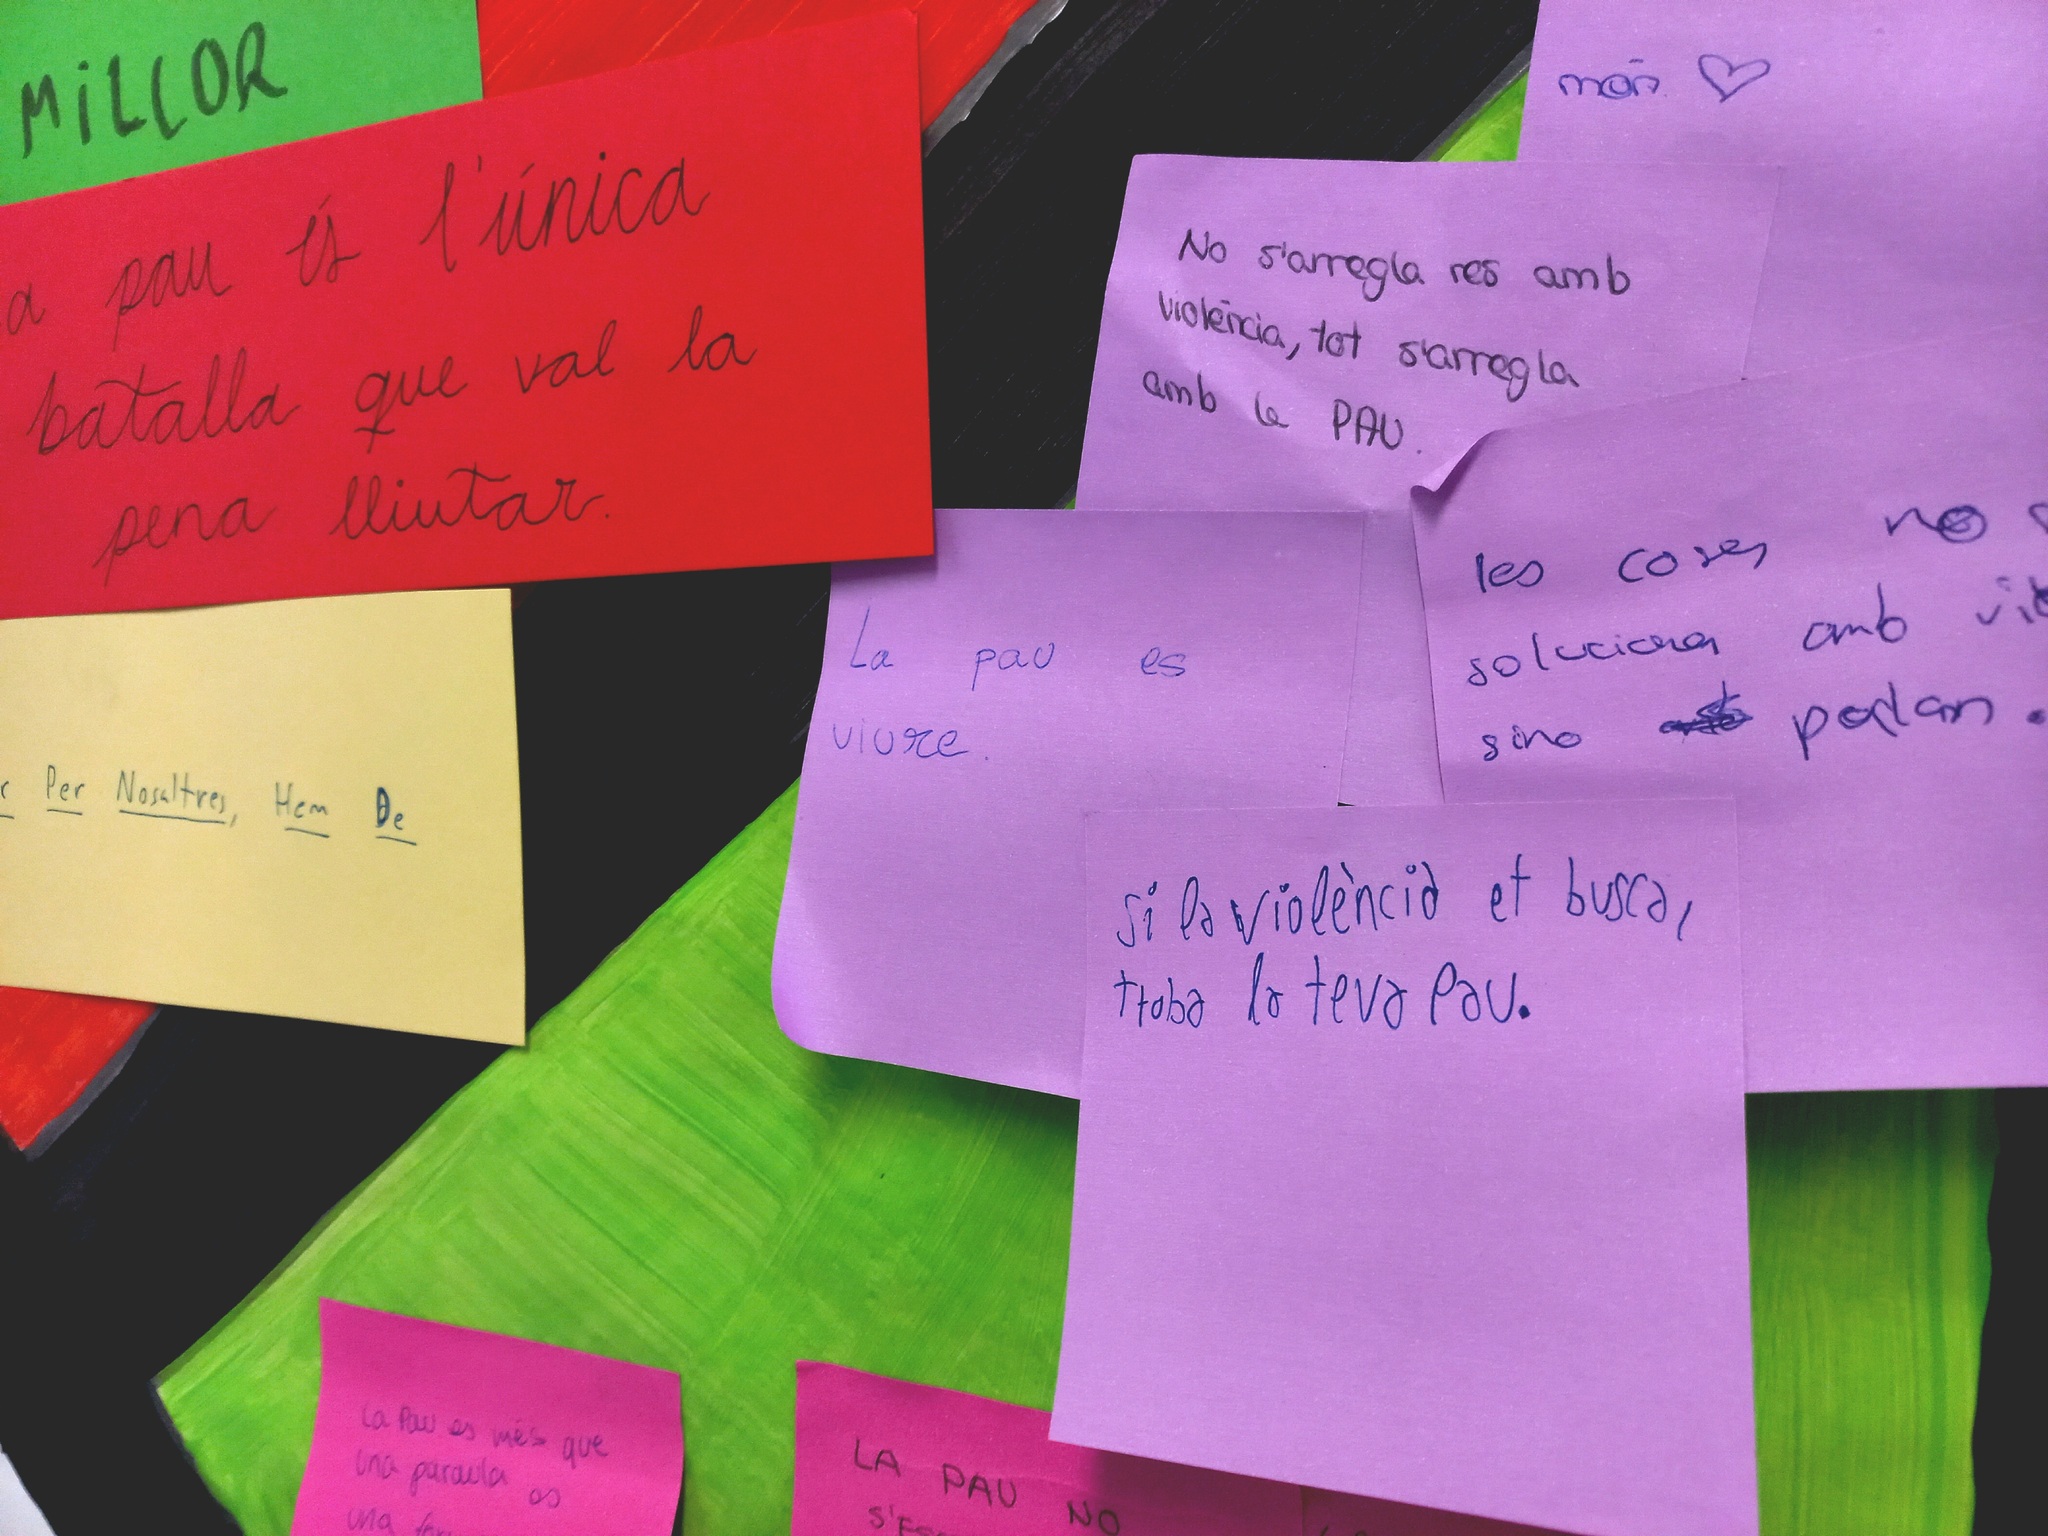 MiLLOR
a pau és l'única
batalla que val la
pena lluitar.
Per Nosaltres, Hem De
món
No s'arregla res amb
violència, tot s'arregla
amb la PAU.
La pau es
viure.
les coses no
solucionen amb
sino parlan.
si la violència et busca,
troba la teva Pau.
La Pau es més que
una paraula es
una
LA PAU NO